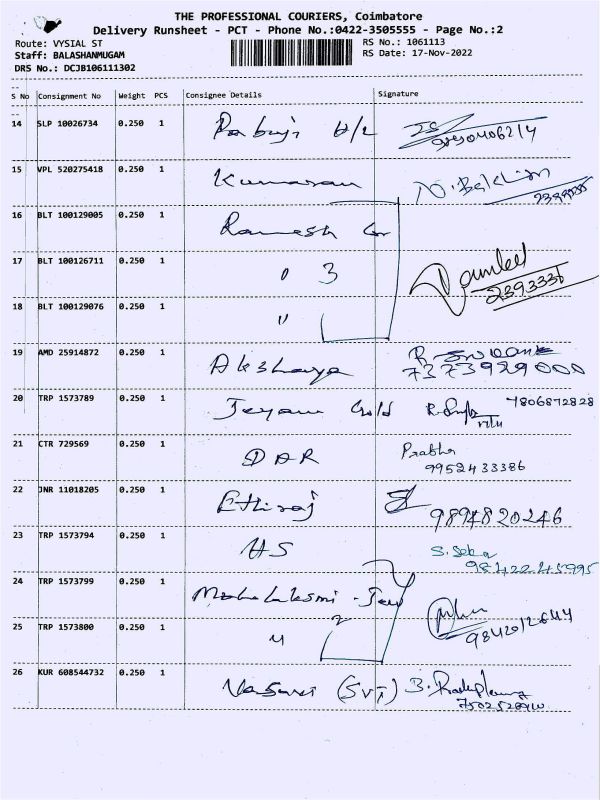 THE PROFESSIONAL COURIERS, Coimbatore
Delivery Runsheet - PCT - Phone No.:0422-3505555 - Page No.:2
Route: VYSIAL ST
RS No.: 1061113
Staff: BALASHANMUGAM
RS Date: 17-Nov-2022
DRS No.: DCJB106111302
S No Consignment No Weight PCS Consignee Details Signature
14 SLP 10026734 0.250 1
15 VPL 520275418 0.250 1 Kumaran
16 BLT 100129005 0.250 1 Ramesh
17 BLT 100126711 0.250 1 " 3
2393336
18 BLT 100129076 0.250 1 "
19 AMD 25914872 0.250 1 Akshaya
7373929000
20 TRP 1573789 0.250 1 Jeyam Gold 7806872828
21 CTR 729569 0.250 1 DAR Prabha
9952433386
22 JNR 11018205 0.250 1 Ethiraj
9894820246
23 TRP 1573794 0.250 1 HS S. Seba
9842245995
24 TRP 1573799 0.250 1 Mahalaksmi - Jew
2
25 TRP 1573800 0.250 1 "
9842012644
26 KUR 608544732 0.250 1 (SVT)